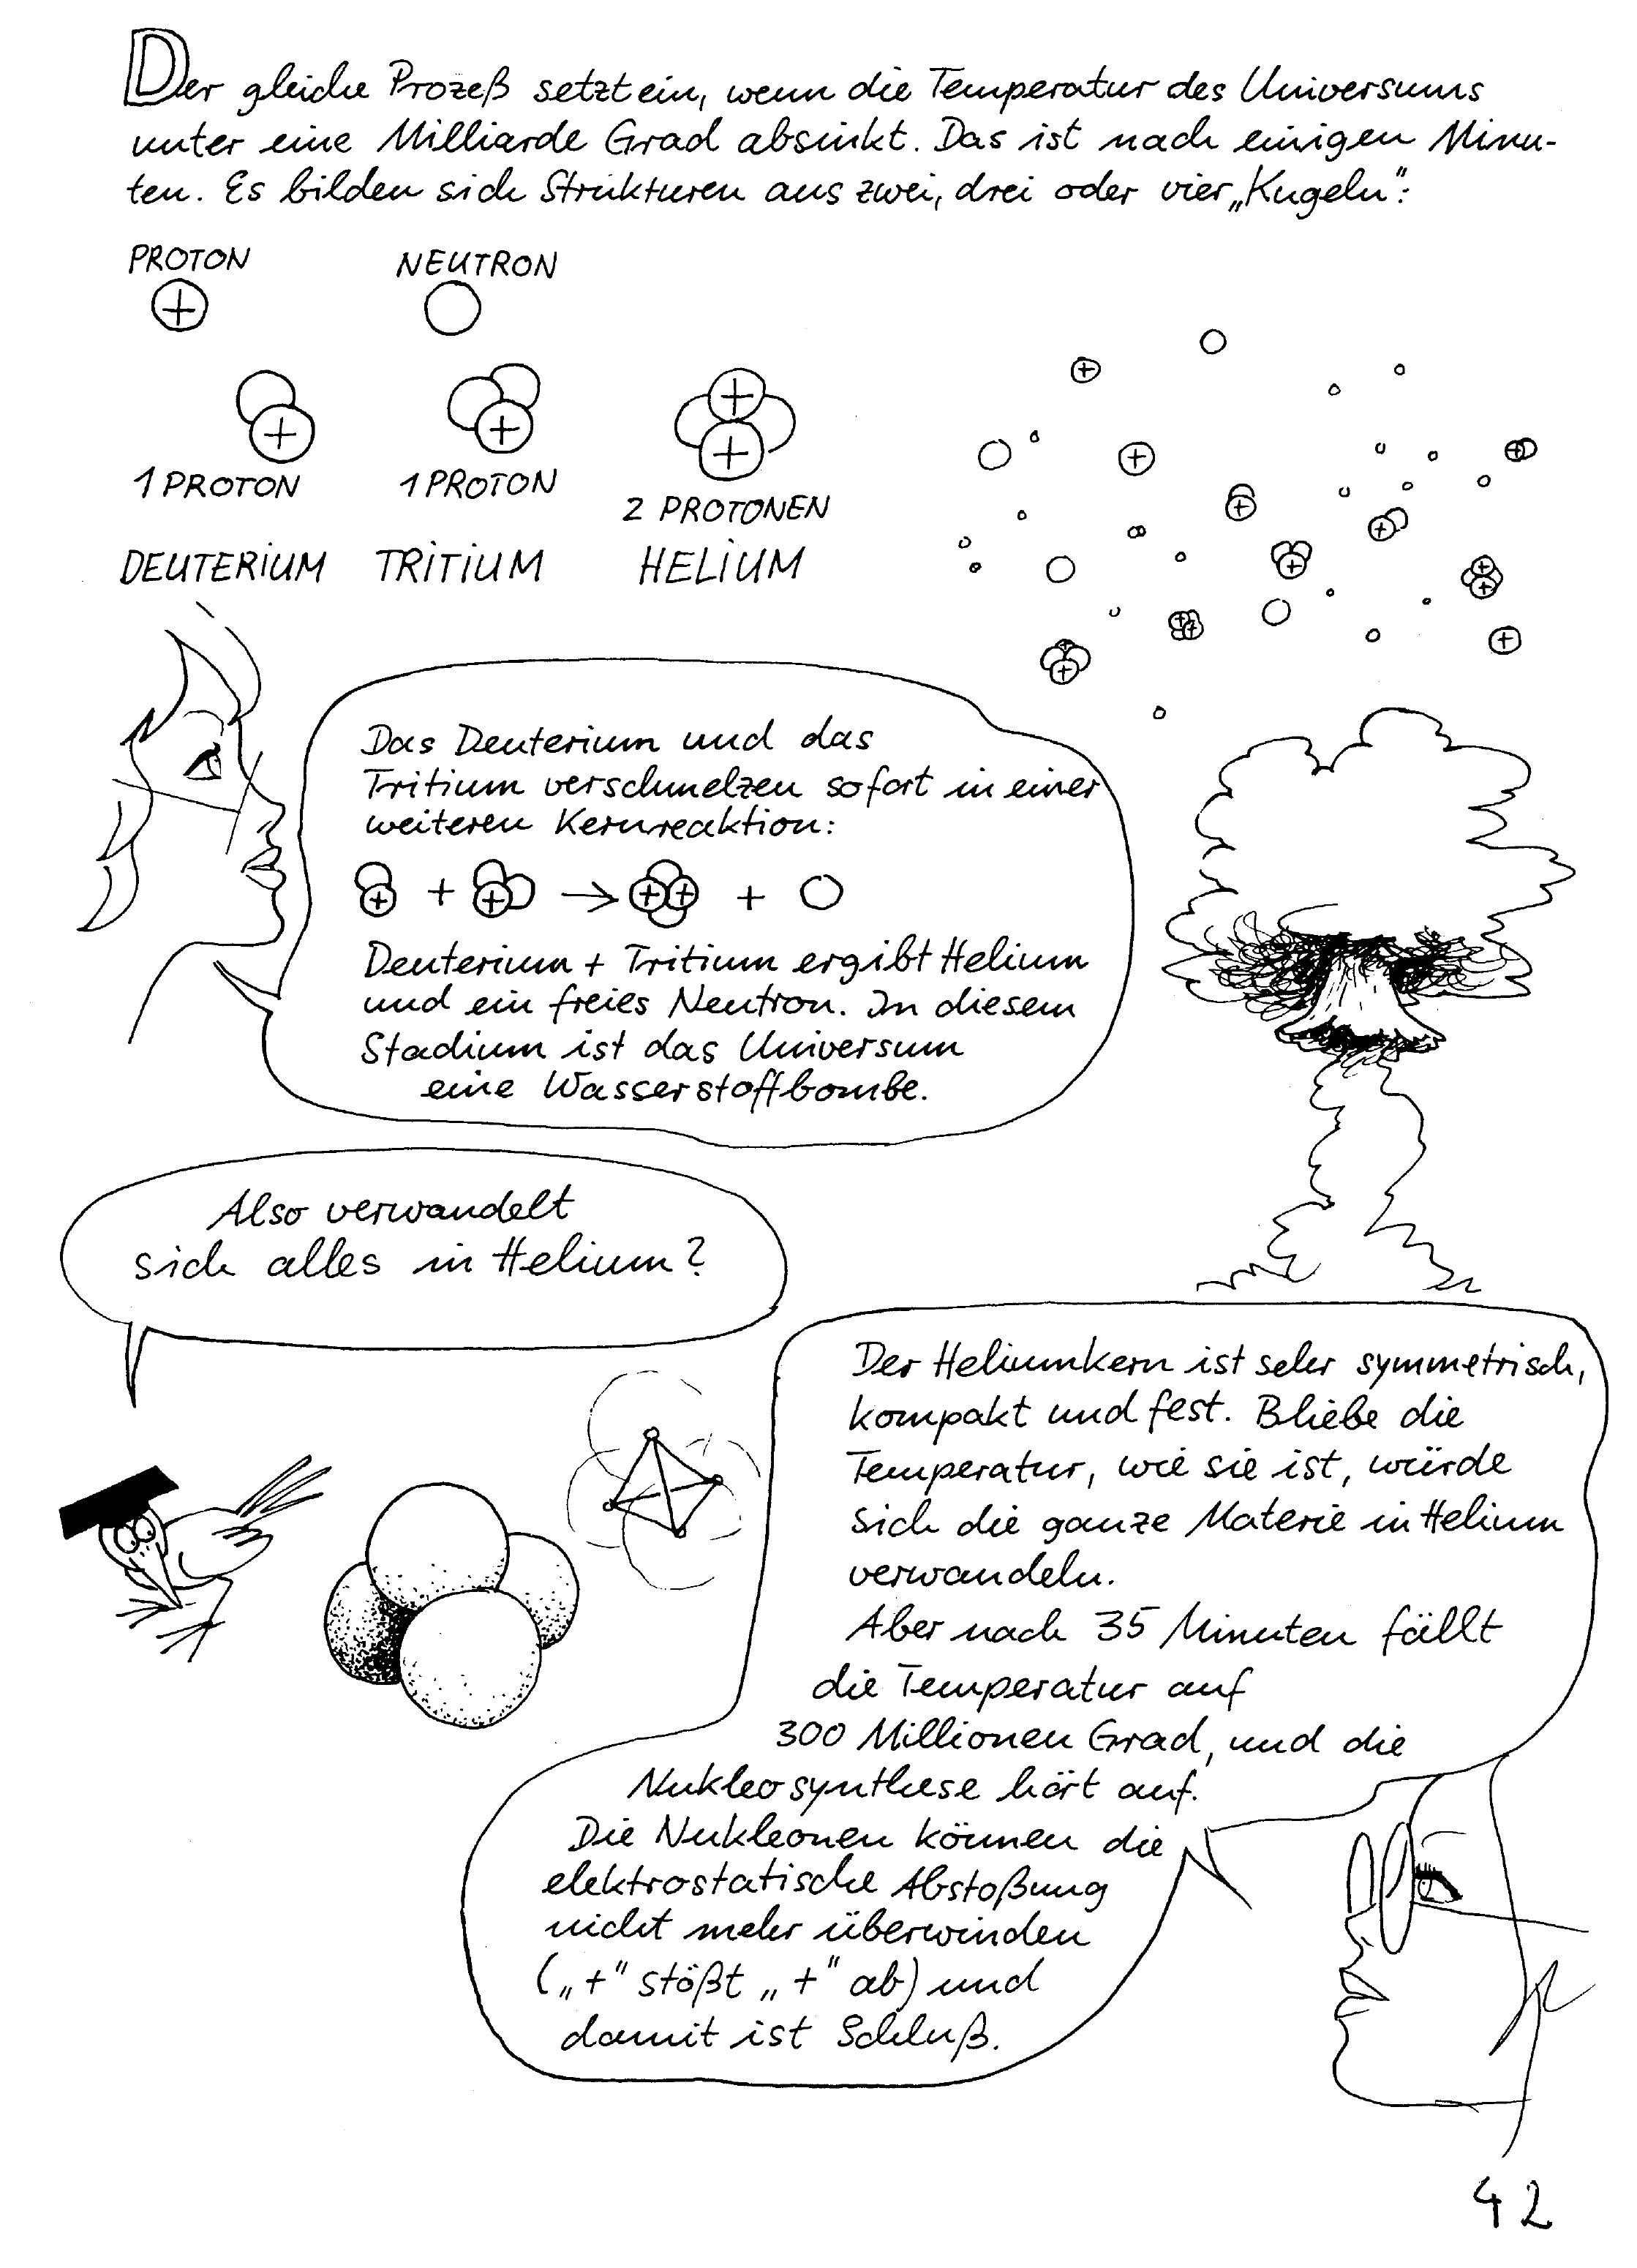 Der gleiche Prozeß setzt ein, wenn die Temperatur des Universums
unter eine Milliarde Grad absinkt. Das ist nach einigen Minu-
ten. Es bilden sich Strukturen aus zwei, drei oder vier „Kugeln“:
PROTON
NEUTRON
+
+
+
+
+
1 PROTON
1 PROTON
2 PROTONEN
DEUTERIUM
TRITIUM
HELIUM
Das Deuterium und das
Tritium verschmelzen sofort in einer
weiteren Kernreaktion:
+ + + → + + +
Deuterium + Tritium ergibt Helium
und ein freies Neutron. In diesem
Stadium ist das Universum
eine Wasserstoffbombe.
Also verwandelt
sich alles in Helium?
Der Heliumkern ist sehr symmetrisch,
kompakt und fest. Bliebe die
Temperatur, wie sie ist, würde
sich die ganze Materie in Helium
verwandeln.
Aber nach 35 Minuten fällt
die Temperatur auf
300 Millionen Grad, und die
Nukleosynthese hört auf.
Die Nukleonen können die
elektrostatische Abstoßung
nicht mehr überwinden
(„+“ stößt „+“ ab) und
damit ist Schluß.
42